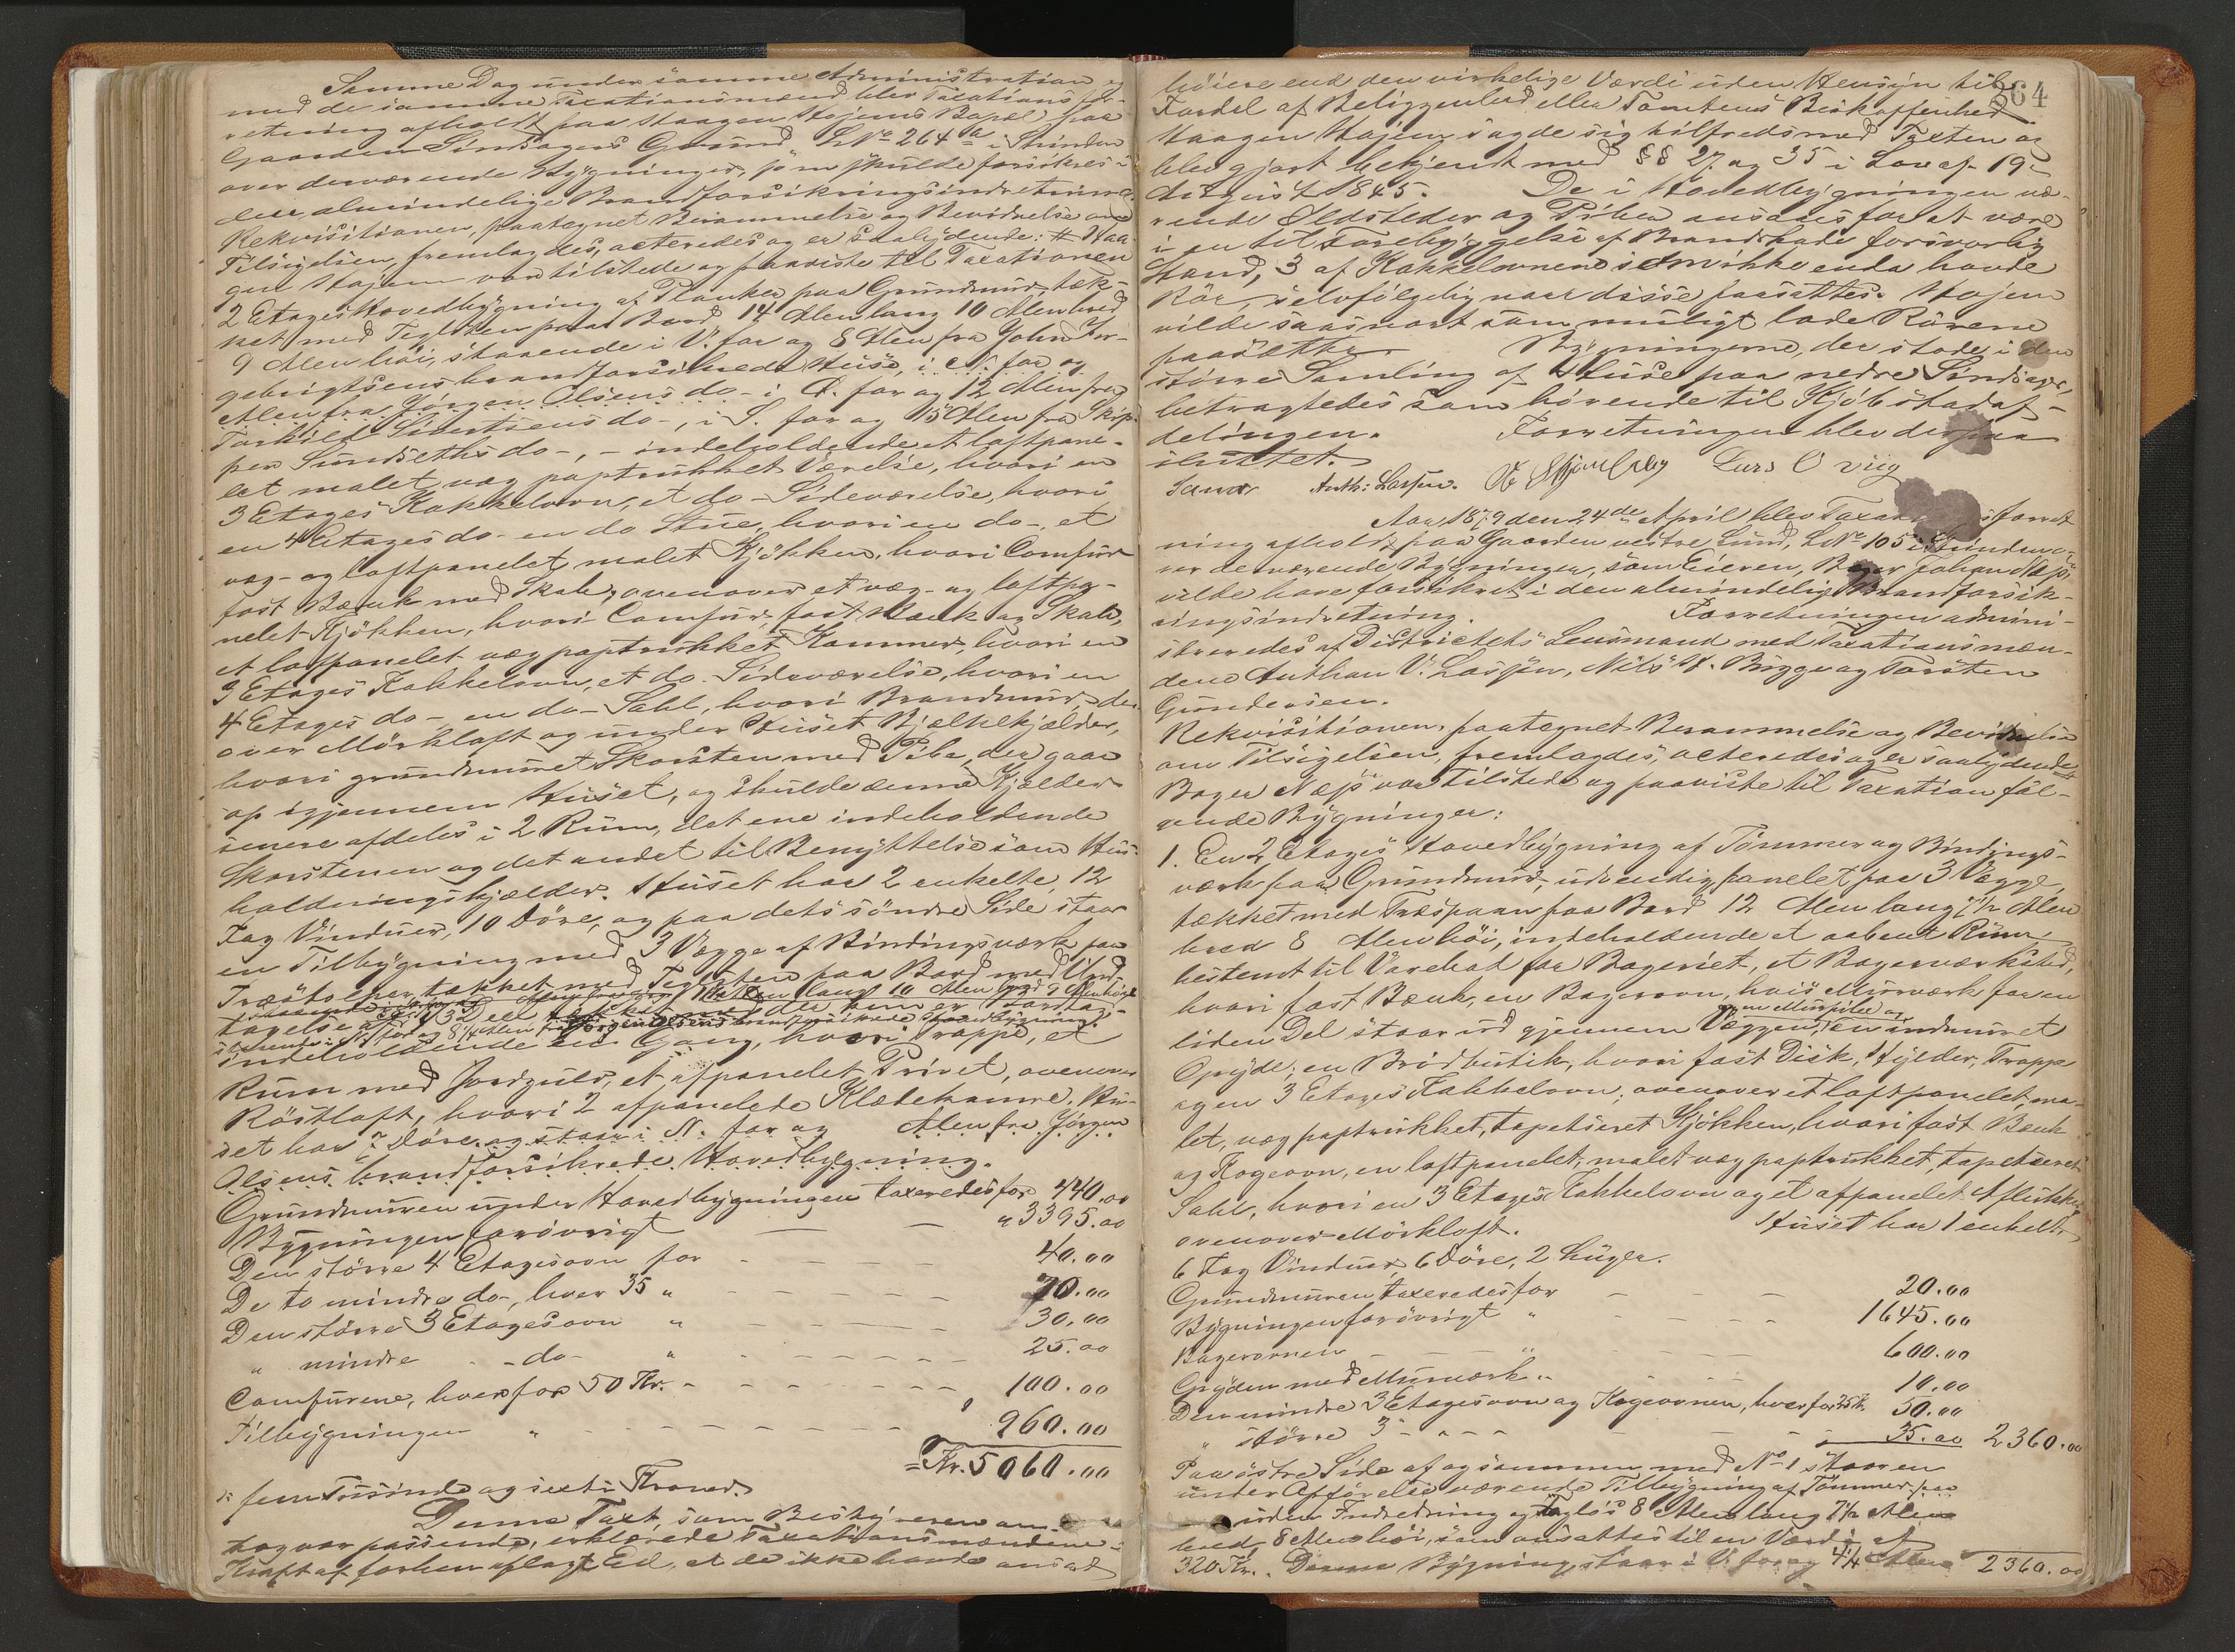 Samme Dag under samme Administration og
med de samme Taxationsmænd blev Taxationsfor-
retning afholdt paa Haagen Hojems Bopæl paa
Gaarden Sindsagers Grund LNo 264a i Strinden
over derværende Bygninger, som skulde forsikres i
den almindelige Brandforsikringsindretning.
Rekvisitionen, paategnet Berammelse og Bevidnelse om
Tilsigelsen, fremlagdes, acteredes og er saalydende: # Haa-
gen Hojem var tilstede og paaviste til Taxationen
2 Etages Hovedbygning af Planker paa Grundmur, tæk-
ket med Teglsten paa Bord 14 Alen lang 10 Alen bred
9 Alen høi, staaende i V. for og 8 Alen fra John Tor-
gebrigtsens brandforsikrede Huse, i N. for og
Alen fra Jørgen Olsens do-, i Ø. for og 12 Alen fra
Torkild Sivertsens do-, i S. for og 15 Alen fra Skip-
per Sundseths do-, - indeholdende et loftpane-
let malet væg paptrukket Værelse, hvori en
3 Etages Kakkelovn, et do- Sideværelse, hvori
en 4 Etages do- en do Stue, hvori en do-, et
væg- og loftpanelet malet Kjøkken, hvori Comfur
fast Bænk med Skab, ovenover et væg- og loftpa-
nelet Kjøkken, hvori Comfur, fast Bænk og Skab,
et loftpanelet væg paptrukket Kammer, hvori en
3 Etages Kakkelovn, et do- Sideværelse, hvori en
4 Etages do- en do- Sahl, hvori Brandmur, der-
over Mörkloft og under Huset Bjelkekjælder,
hvori grundmuret Skorsten med Pibe, der gaar
op igjennem Huset, og skulde denne Kjælder
senere afdeles i 2 Rum, det ene indeholdende
Skorstenen og det andet til Benyttelse som Hus-
holdningskjælder. Huset har 2 enkelte, 12
Fag Vinduer, 10 Döre, og paa dets söndre Side staar
en Tilbygning med 3 Vægge af Bindingsværk paa
Træstolper tækket med Teglsten paa Bord med Und-
tagelse af
indeholdende en Gang, hvori Trappe, et
Rum med Jordgulv, et afpanelet Privet, ovenover
Röstloft, hvori 2 afpanelede Klædekamre. Hu-
set har 7 Döre og staar i N. for og Alen fra Jørgen
Olsens brandforsikrede Hovedbygning.
Grundmuren under Hovedbygningen taxeredes for 440.00
Bygningen forövrigt " 3395.00
Den större 4 Etagesovn for 40.00
De to mindre do-, hver 35 " 70.00
Den större 3 Etagesovn " 30.00
" mindre -do- " 25.00
Comfurene, hver for 50 Kr. 100.00
Tilbygningen " 960.00
= Kr. 5060.00
fem Tusinde og sexti Kroner.
Denne Taxt, som Bestyreren an-
tog var passende, erklærede Taxationsmændene i
Kraft af forhen aflagt Ed, at de ikke havde ansat
264
høiere end den virkelige Værdi uden Hensyn til
Fordel af Beliggenhed eller Tomtens Beskaffenhed.
Haagen Hojem sagde sig tilfreds med Taxten og
blev gjort bekjendt med §§ 27 og 35 i Lov af 19-
August 1845. De i Hovedbygningen væ-
rende Ildsteder og Piber ansaaes for at være
i en til Forebyggelse af Brandskade forsvarlig
Stand, 3 af Kakkelovnene som ikke enda havde
Rör selvfölgelig naar disse paasattes. Hojem
vilde saasnart som muligt lade Rörene
paasætte. Bygningerne, der stode i den
större Samling af Huse paa nedre Sindsager,
betragtedes som hörende til Kjöbstadaf-
delingen. Forretningen blev derpaa
sluttet.
Anth: Lassen. Lars Oviig
Aar 1879 den 24de April blev Taxationsforret
ning afholdt paa Gaarden vestre Lund, LNo 105 i Strinden o-
ver derværende Bygninger, som Eieren, Bager Johan Næss
vilde have forsikret i den almindelige Brandforsik-
ringsindretning. Forretningen admini-
streredes af Districtets Lensmand med Taxationsmæn-
dene Anthon V. Lassen, Nils H. Brygge og Torsten
Gundersen.
Rekvisitionen, paategnet Berammelse og Bevidnelse
om Tilsigelsen, fremlagdes, acteredes og er saalydende
Bager Næss var tilstede og paaviste til Taxation föl-
gende Bygninger:
1. En 2 Etages Hovedbygning af Tömmer og Bindings-
værk paa Grundmur, udvendig panelet paa 3 Vægge,
tækket med Træspaan paa Bord 12 Alen lang 7 1/2 Alen
bred 8 Alen höi, indeholdende et aabent Rum
bestemt til Varebod for Bageriet, et Bagerværksted,
hvori fast Bænk, en Bagerovn, hvis Murværk for en
liden Del staar ud gjennem Væggen, en Murpibe og en indmuret
Gryde; en Brödbutik, hvori fast Disk, Hylder, Trappe
og en 3 Etages Kakkelovn; ovenover et loftpanelet, ma-
let, væg paptrukket, tapetseret Kjökken, hvori fast Bænk
og Kogeovn, en loftpanelet, malet væg paptrukket, tapetseret
Sahl, hvori en 3 Etages Kakkelovn og et afpanelet Aflukke,
ovenover Mörkloft. Huset har 1 enkelt
6 Fag Vinduer, 6 Döre, 2 Luger.
Grundmuren taxeredes for 20.00
Bygningen forövrigt " 1645.00
Bagerovnen " 600.00
Gryden med Murværk " 10.00
Den mindre 3 Etagesovn og Kogeovnen, hver for 25 Kr. 50.00
" större 3 - " - - 35.00 2360.00
Paa östre Side af og sammen med No 1 staar en
under Opförelse værende Tilbygning af Tömmer paa
uden Indredning og Fagløs 8 Alen lang 7 1/2 Alen
bred 8 Alen höi, som ansattes til en Værdi af
320 Kr. Denne Bygning staar i V. for og 4 1/4 Alen 2360.00